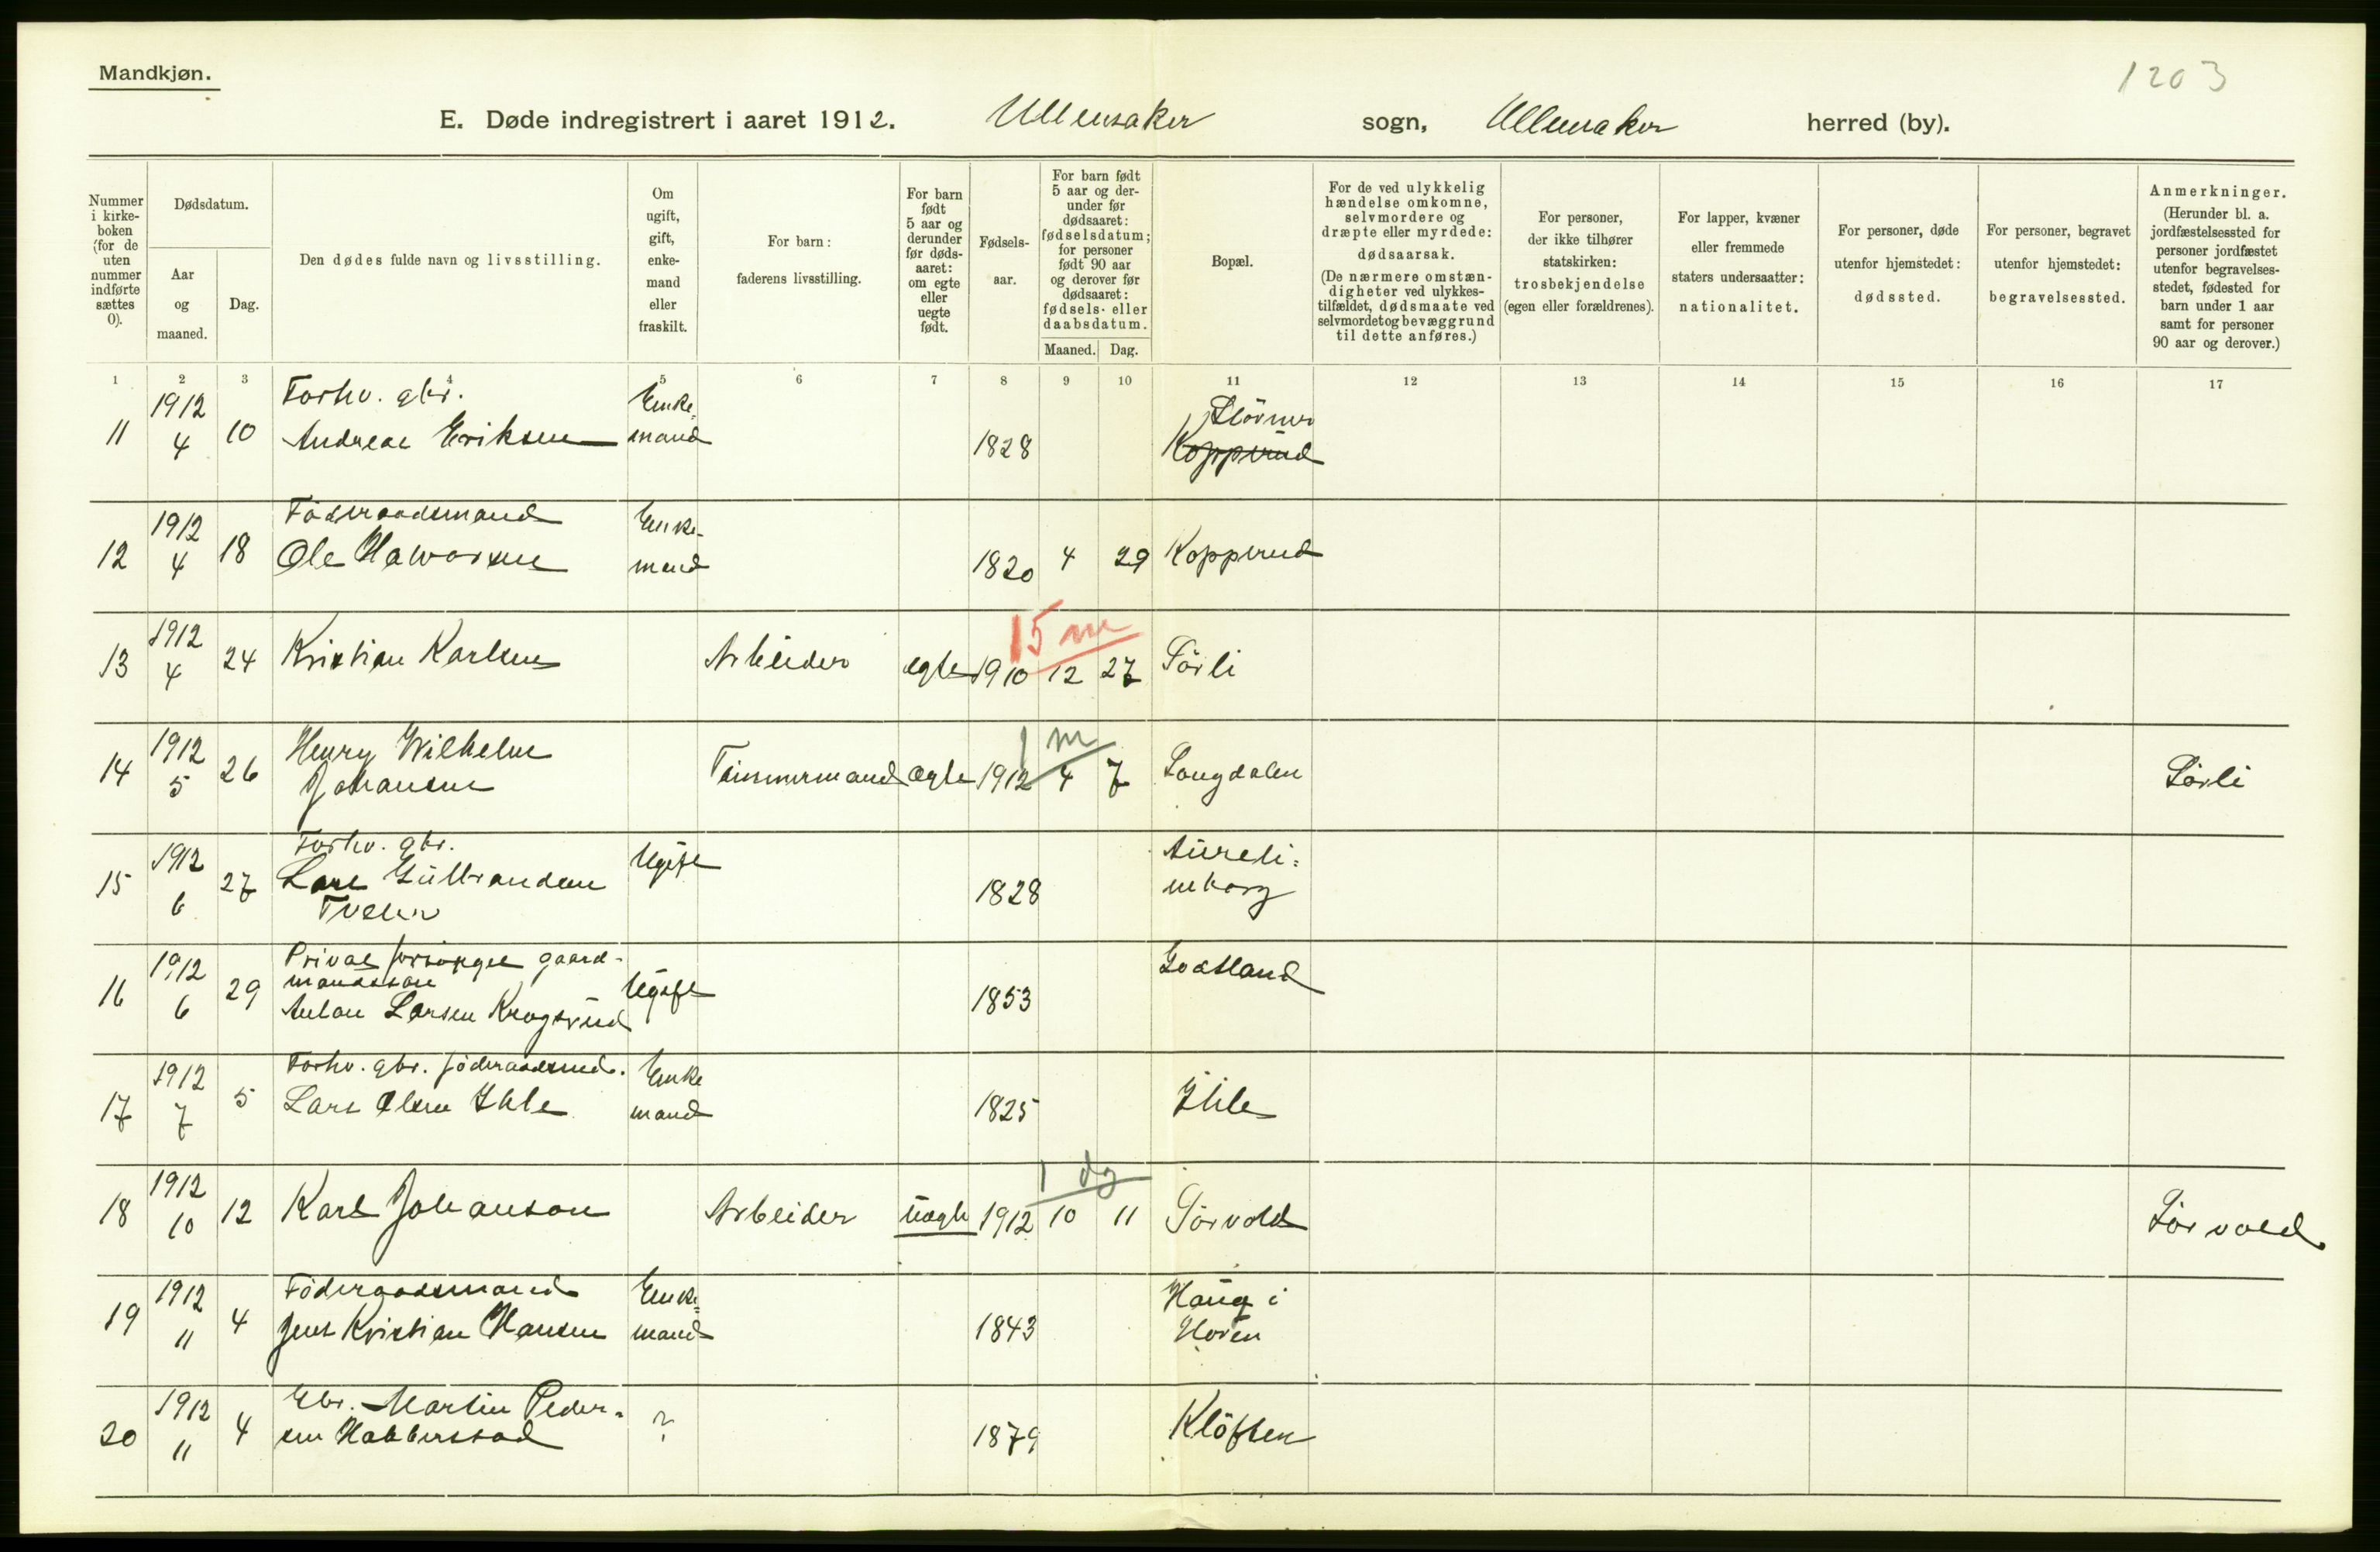 Mandkjøn.
1203
E. Døde indregistrert i aaret 1912. Ullensaker sogn, Ullensaker herred (by).
Nummer i kirke- boken (for de uten nummer indførte sættes 0).
Dødsdatum.
Aar og maaned.
Dag.
Den dødes fulde navn og livsstilling.
Om ugift, gift, enke- mand eller fraskilt.
For barn: faderens livsstilling.
For barn født 5 aar og derunder før døds- aaret: om egte eller uegte født.
Fødsels- aar.
For barn født 5 aar og der- under før dødsaaret: fødselsdatum; for personer født 90 aar og derover før dødsaaret: fødsels- eller daabsdatum.
Maaned. Dag.
Bopæl.
For de ved ulykkelig hændelse omkomne, selvmordere og dræpte eller myrdede: dødsaarsak. (De nærmere omstæn- digheter ved ulykkes- tilfældet, dødsmaate ved selvmordet og bevæggrund til dette anføres.)
For personer, der ikke tilhører statskirken: trosbekjendelse (egen eller forældrenes).
For lapper, kvæner eller fremmede staters undersaatter: nationalitet.
For personer, døde utenfor hjemstedet: dødssted.
For personer, begravet utenfor hjemstedet: begravelsessted.
Anmerkninger. (Herunder bl. a. jordfæstelsessted for personer jordfæstet utenfor begravelses- stedet, fødested for barn under 1 aar samt for personer 90 aar og derover.)
1 2 3 4 5 6 7 8 9 10 11 12 13 14 15 16 17
1912 Forhv. gbr. Enke-
11 4 10 Andreas Eriksen mand 1828 Kopperud
1912 Föderaadsmand Enke-
12 4 18 Ole Halvorsen mand 1820 4 29 Kopperud
1912 15 m
13 4 24 Kristian Karlsen Arbeider egte 1910 12 27 Sörli
1912 Henry Wilhelm 1 m
14 5 26 Johansen Tömmermand egte 1912 4 7 Langdalen Sörli
1912 Forhv. gbr. Ugift
15 6 27 Lars Gulbrandsen 1828
Tveter
1912 Privat forsörget gaard-
mandssön
16 6 29 Anton Larsen Krogsrud Ugift 1853
1912 Forhv. gbr. föderaadsmd. Enke
17 7 5 Lars Olsen Ihle mand 1825 Ihle
1912 1 dg
18 10 12 Karl Johanson Arbeider uegte 1912 10 11 Sörvold Sörvold
1912 Föderaadsmand Enke- Haug i
19 11 4 Jens Kristian Hansen mand 1843
1912 Gbr. Martin Peder-
20 11 4 sen Habberstad ? 1879 Klöften